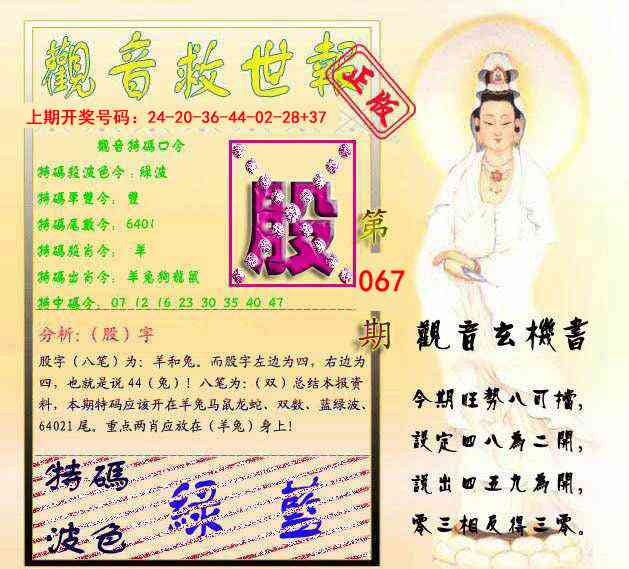 觀音救世報
正版
上期开奖号码：24-20-36-44-02-28+37
觀音特碼口令
特碼殺波色令：綠波
特碼單雙令：雙
特碼尾數令：6401
特碼殺肖令：羊
特碼出肖令：羊兔狗龍鼠
特中碼令：07 12 16 23 30 35 40 47
股
第
067
期
分析:（股）字
股字（八笔）为：羊和兔。而股字左边为四，右边为
四，也就是说44（兔）！八笔为：（双）总结本报资
料，本期特码应该开在羊兔马鼠龙蛇、双数、蓝绿波、
64021尾。重点两肖应放在（羊兔）身上！
特碼
波色
綠 藍
觀音玄機書
今期旺勢八可擋，
設定四八為二開，
說出四五九為開，
零三相反得三零。